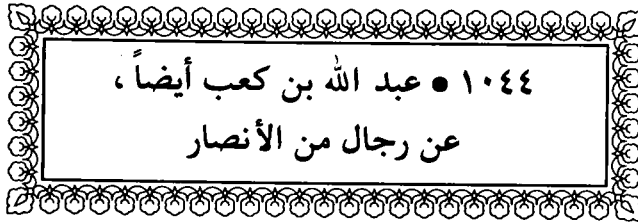 ١٠٤٤ • عبد الله بن كعب أيضاً ،
عن رجال من الأنصار